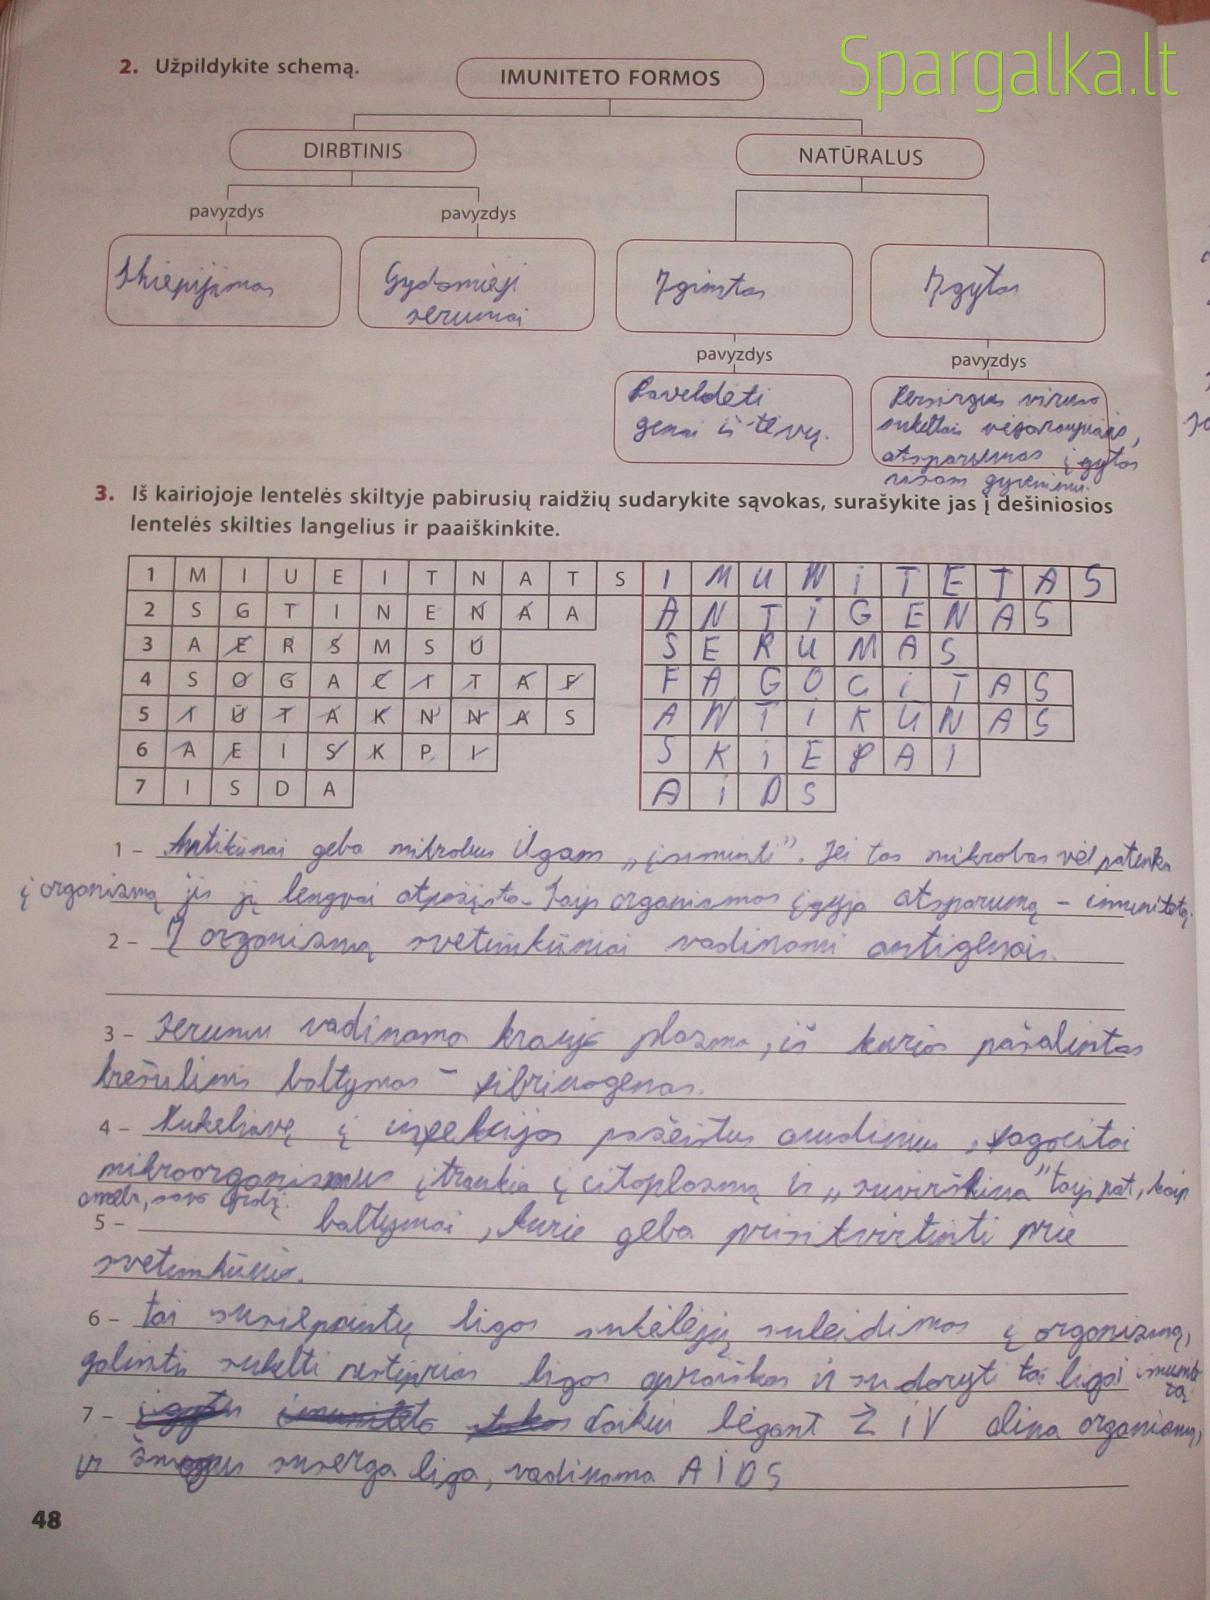 Spargalka.lt
2. Užpildykite schemą.
IMUNITETO FORMOS
DIRBTINIS
NATŪRALUS
pavyzdys
pavyzdys
Skiepijimas
Gydomieji
serumai
Įgimtas
Įgytas
pavyzdys
pavyzdys
Paveldėti
genai iš tėvų.
Persirgus viruso
sukeltais vėjaraupiais,
atsparumas įgytas
visam gyvenimui.
3. Iš kairiojoje lentelės skiltyje pabirusių raidžių sudarykite sąvokas, surašykite jas į dešiniosios
lentelės skilties langelius ir paaiškinkite.
1 M I U E I T N A T S I M U N I T E T A S
2 S G T I N E N A A A N T I G E N A S
3 A E R S M S U S E R U M A S
4 S O G A C I T A F F A G O C I T A S
5 I Ū T A K N N A S A N T I K Ū N A S
6 A E I S K P I S K I E P A I
7 I S D A A I D S
1 – Antikūnai geba mikrobus ilgam „įsiminti”. Jei tas mikrobas vėl patenka
į organizmą jis jį lengvai atpažįsta. Taip organizmas įgyja atsparumą – imunitetą.
2 – Į organizmą svetimkūniai vadinami antigenais.
3 – Serumu vadinama kraujo plazma, iš kurios pašalintas
krešulinis baltymas – fibrinogenas.
4 – Nukeliavę į infekcijos pažeistus audinius, fagocitai
mikroorganizmus įtraukia į citoplazmą ir „suvirškina” taip pat, kaip
ameba, savo grobį.
5 – baltymai, kurie geba prisitvirtinti prie
svetimkūnio.
6 – tai susilpnintų ligos sukėlėjų suleidimas į organizmą,
galintis sukelti nestiprias ligos apraiškas ir sudaryti tai ligai imunite-
tą
7 – Laikui bėgant ŽIV alina organizmą,
ir žmogus suserga liga, vadinama AIDS
48